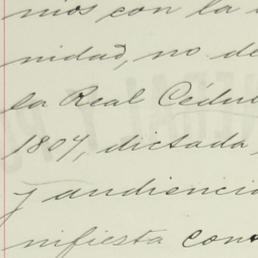 mos con la
nidad, no de
la Real Cédu
1804, dictada
y audienci
nifiesta con